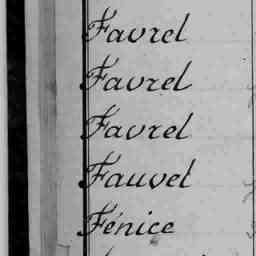 Favrel
Favrel
Favrel
Fauvel
Fénice